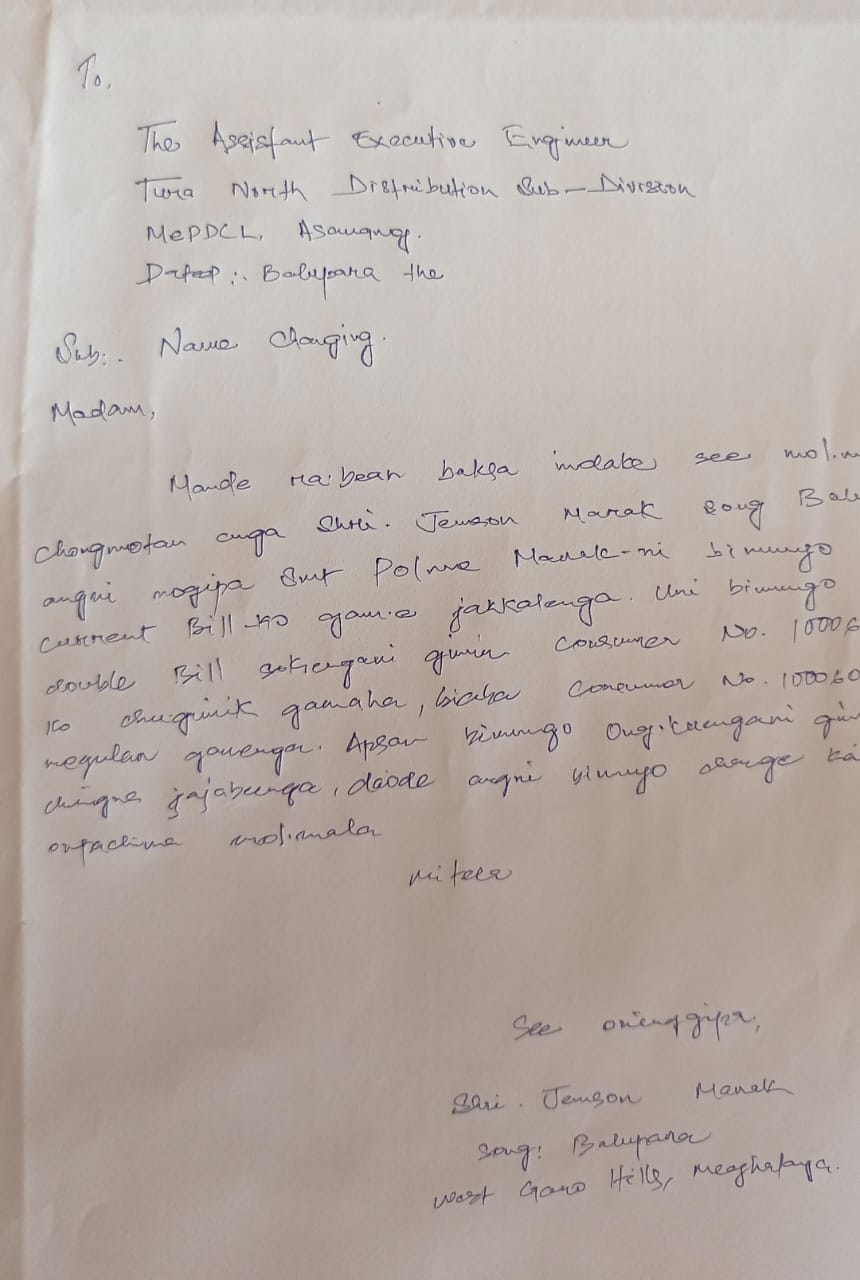 To,
The Assistant Executive Engineer
Tura North Distribution Sub-Division
MePDCL, Asanang.
Dated:. Balupara the
Sub:. Name Changing.
Madam,
Mande ra·bean baksa indake see mol.m
chongmotan anga Shri. Jemson Marak song Balu
angni nogipa Smt Polme Marak-ni bimungo
current Bill-ko gam·e jakkalenga. Uni bimungo
double Bill sokengani gimin Consumer No. 10006
ko chugimik gamaha, biaba Consumer No. 100060
regular gamenga. Apsan bimungo Ong·kaengani gim
chingna jajabeenga, daode angni bimungo change ka
on·pachina mol·mola
mitela
See on·enggipa,
Shri. Jemson Marak
Song: Balupara
West Garo Hills, Meaghalaya.